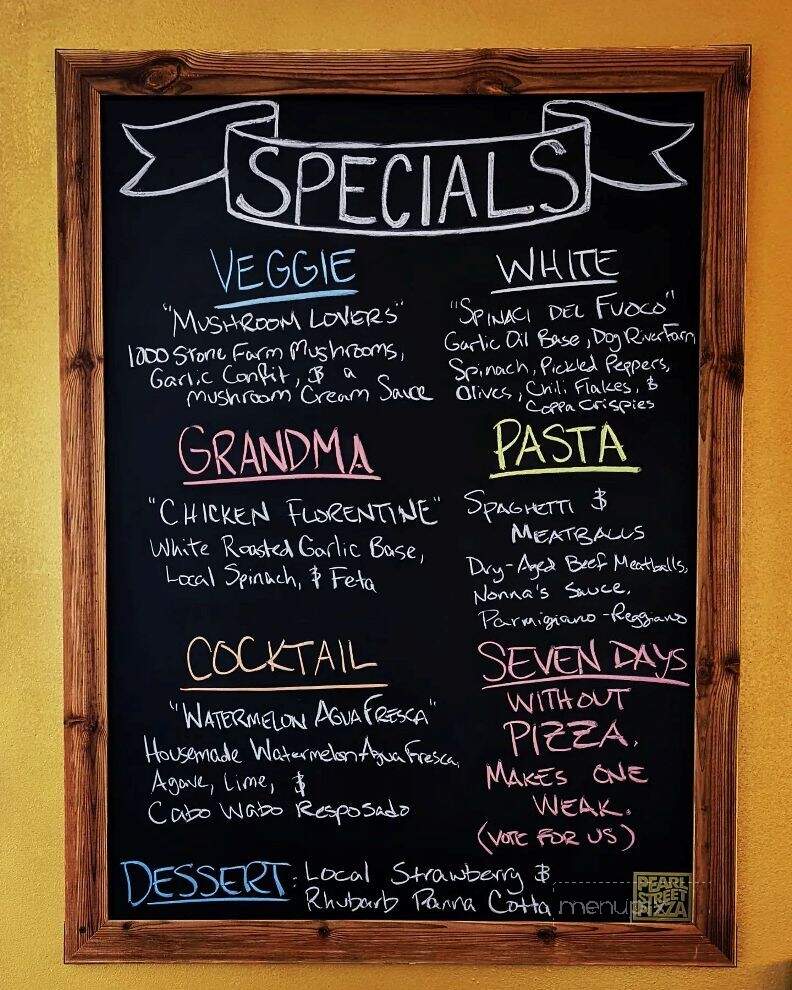 SPECIALS
VEGGIE
"MUSHROOM LOVERS"
1000 Stone Farm Mushrooms,
Garlic Confit, & a
mushroom Cream Sauce
WHITE
"SPINACI DEL FUOCO"
Garlic Oil Base, Dog River Farm
Spinach, Pickled Peppers,
Olives, Chili Flakes, &
Coppa Crispies
GRANDMA
"CHICKEN FLORENTINE"
White Roasted Garlic Base,
Local Spinach, & Feta
PASTA
SPAGHETTI &
MEATBALLS
Dry-Aged Beef Meatballs,
Nonna's Sauce,
Parmigiano-Reggiano
COCKTAIL
"WATERMELON AGUA FRESCA"
Housemade Watermelon Agua Fresca,
Agave, Lime, &
Cabo Wabo Resposado
SEVEN DAYS
WITHOUT
PIZZA.
MAKES ONE
WEAK.
(VOTE FOR US)
DESSERT: Local Strawberry &
Rhubarb Panna Cotta
PEARL
STREET
PIZZA